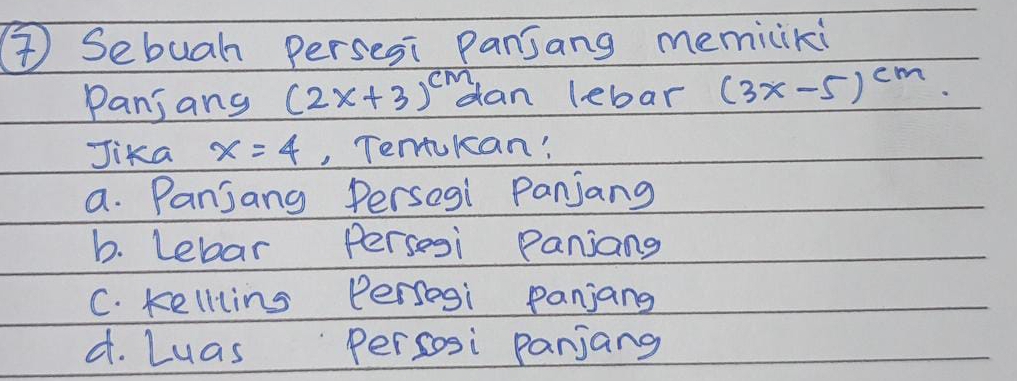 7 Sebuah persegi panjang memiliki
panjang (2x+3) cm dan lebar (3x-5) cm.
Jika x = 4, Tentukan:
a. Panjang persegi panjang
b. Lebar persegi panjang
c. Keliling persegi panjang
d. Luas persegi panjang